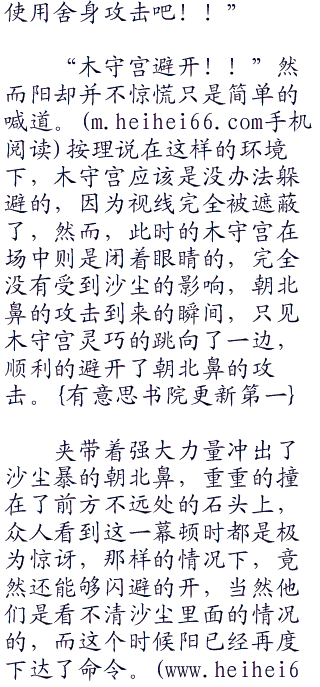 使用舍身攻击吧！！”
“木守宫避开！！”然
而阳却并不惊慌只是简单的
喊道。(m.heihei66.com手机
阅读)按理说在这样的环境
下，木守宫应该是没办法躲
避的，因为视线完全被遮蔽
了，然而，此时的木守宫在
场中则是闭着眼睛的，完全
没有受到沙尘的影响，朝北
鼻的攻击到来的瞬间，只见
木守宫灵巧的跳向了一边，
顺利的避开了朝北鼻的攻
击。{有意思书院更新第一}
夹带着强大力量冲出了
沙尘暴的朝北鼻，重重的撞
在了前方不远处的石头上，
众人看到这一幕顿时都是极
为惊讶，那样的情况下，竟
然还能够闪避的开，当然他
们是看不清沙尘里面的情况
的，而这个时候阳已经再度
下达了命令。(www.heihei6